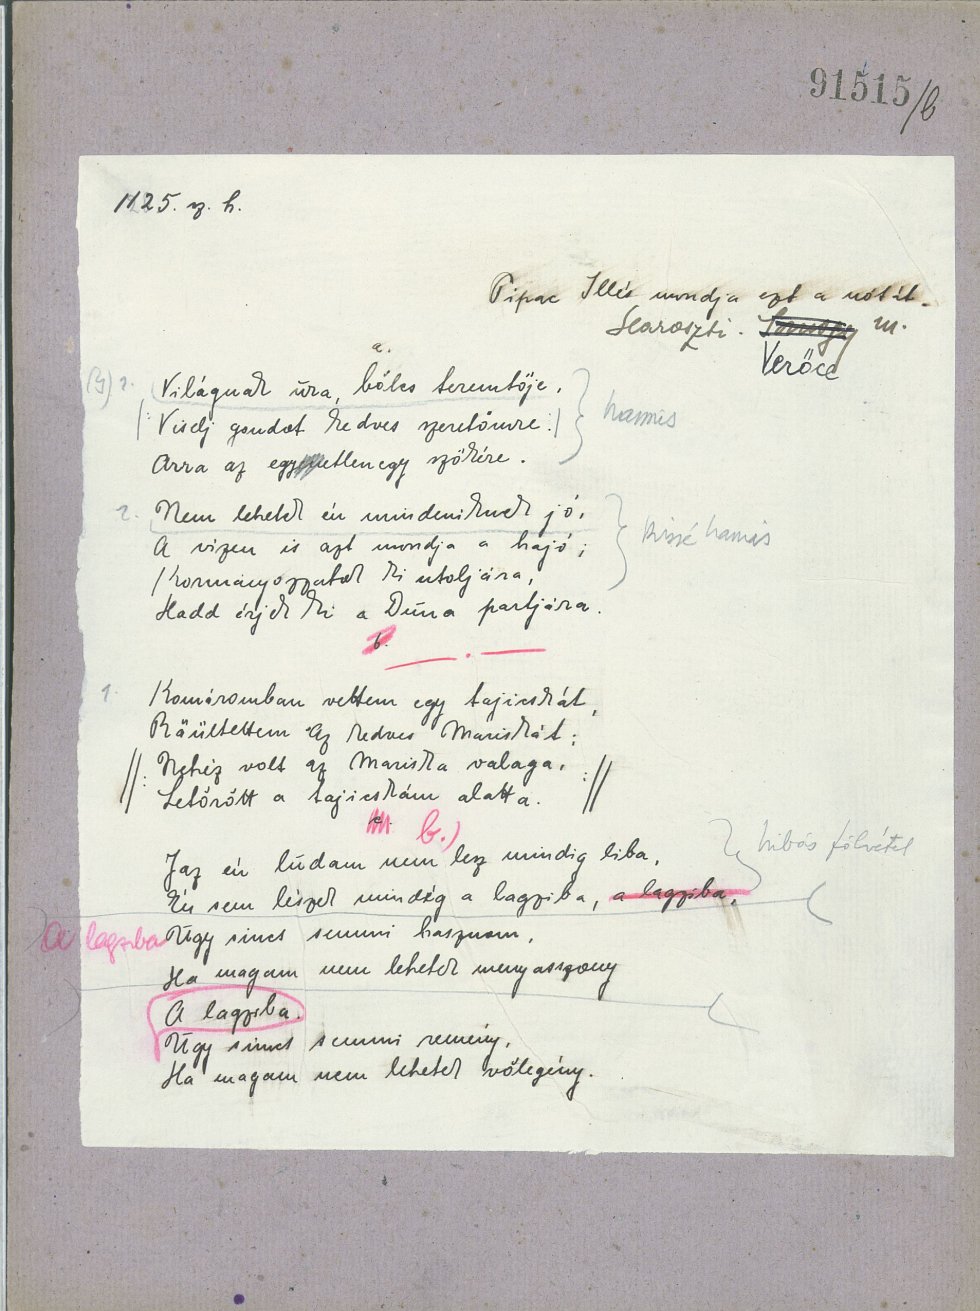 91515/b
1125. sz. h.
Pipac Illés mondja ezt a nótát.
Szaroszti. m.
Verőce
a.
1. Világnak ūra, bölcs teremtője,
|: Viselj gondot kedves szeretőmre :| hamis
Arra az egyetlenegy szőkére.
2. Nem lehetek én mindeniknek jó,
A vizen is azt mondja a hajó; kissé hamis
Kormányozzatok ki utoljára,
Hadd érjek ki a Dūna partjára.
b.
1. Komáromban vettem egy tajicskát,
Ráültettem az kedves Mariskát;
||: Nehéz volt az Mariska valaga,
Letörött a tajicskám alatta. :||
c. b.)
Jaz én lūdam nem lesz mindig liba, hibás fölvétel
Én sem lészek mindég a lagziba, a lagziba,
A lagziba Úgy sincs semmi hasznom,
Ha magam nem lehetek menyasszony
A lagziba.
Úgy sincs semmi remény,
Ha magam nem lehetek vőlegény.